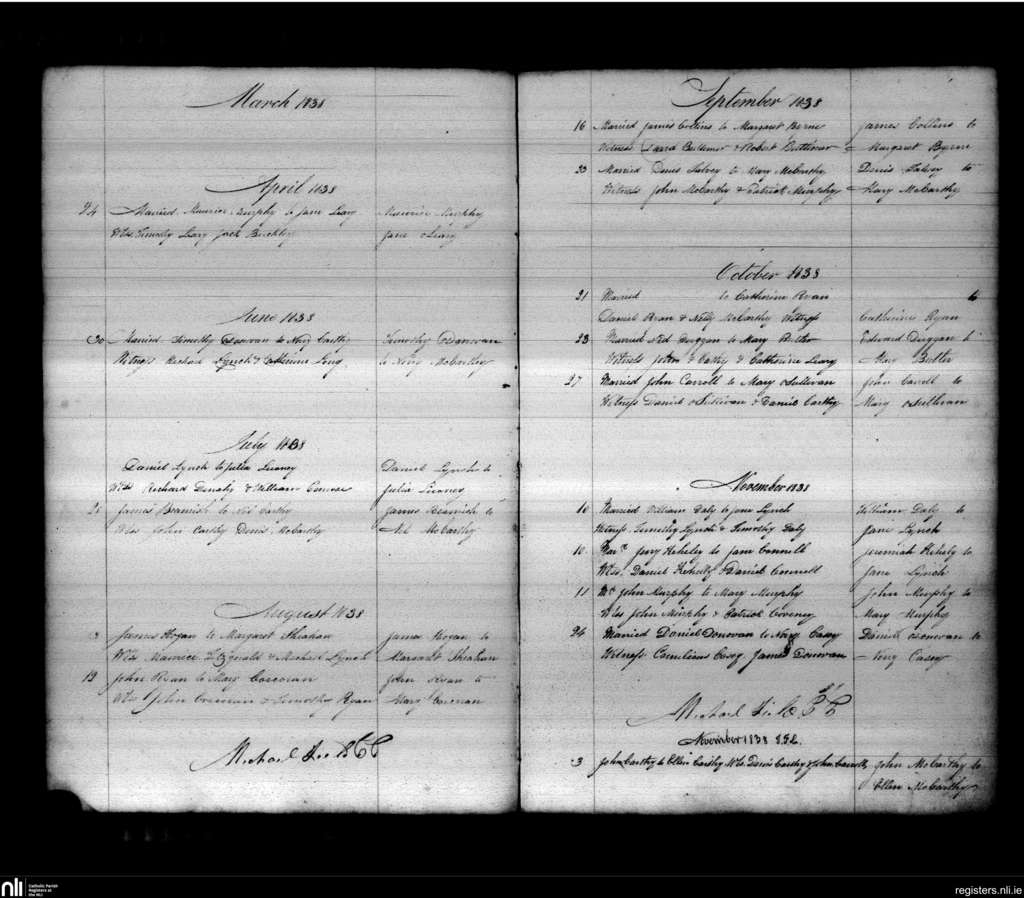 March 1838
April 1838
24 Married Maurice Murphy to Jane Leary Maurice Murphy
Wtss. Timothy Leary Jack Buckley Jane Leary
June 1838
30 Married Timothy Donovan to Nory Carthy Timothy Donovan
Witness Richard Lynch & Catherine Long to Nory McCarthy
July 1838
Daniel Lynch to Julia Lucney Daniel Lynch to
Wtss Richard Denahy & William Connor Julia Lucney
James Beamish to Nel Carthy James Beamish to
Wtss John Carthy Denis McCarthy Nel McCarthy
August 1838
3 James Hogan to Margaret Sheahan James Hogan to
Wtss Maurice Fitzgerald & Michael Lynch Margaret Sheahan
19 John Ryan to Mary Corcoran John Ryan to
Wtss John Corcoran & Timothy Ryan Mary Corcoran
Michael
September 1838
16 Married James Collins to Margaret Berne James Collins to
Witness David & Robert Buttimer Margaret Byrne
Married Denis Falvey to Mary McCarthy Denis Falvey to
Witness John McCarthy & Patrick Murphy Mary McCarthy
October 1838
21 Married to Catherine Ryan to
Daniel Ryan & Nelly McCarthy Witness Catherine Ryan
23 Married Nld Duggan to Mary Butler Edward Duggan to
Witness John & Catherine Leary Mary Butler
27 Married John Carroll to Mary oSullivan John Carroll to
Witness Daniel oSullivan & Daniel Carthy Mary oSullivan
November 1838
10 Married William Daly to Jane Lynch William Daly to
Witness Timothy Lynch & Timothy Daly Jane Lynch
10 Mard. Jery Keheley to Jane Connell Jeremiah Kehely to
Wtss. Daniel Kehelly & Daniel Connell Jane Lynch
11 Md John Murphy to Mary Murphy John Murphy to
Wtss John Murphy & Patrick Coveney Mary Murphy
24 Married Daniel Donovan to Nory Casey Daniel Donovan to
Witness Cornelius Casey James Donovan Nory Casey
Michael
November 1838
3 John Carthy to Ellen Carthy Wtss. Denis Carthy & John Carroll John McCarthy to
Ellen McCarthy
nli Catholic Parish
Registers at
the NLI
registers.nli.ie